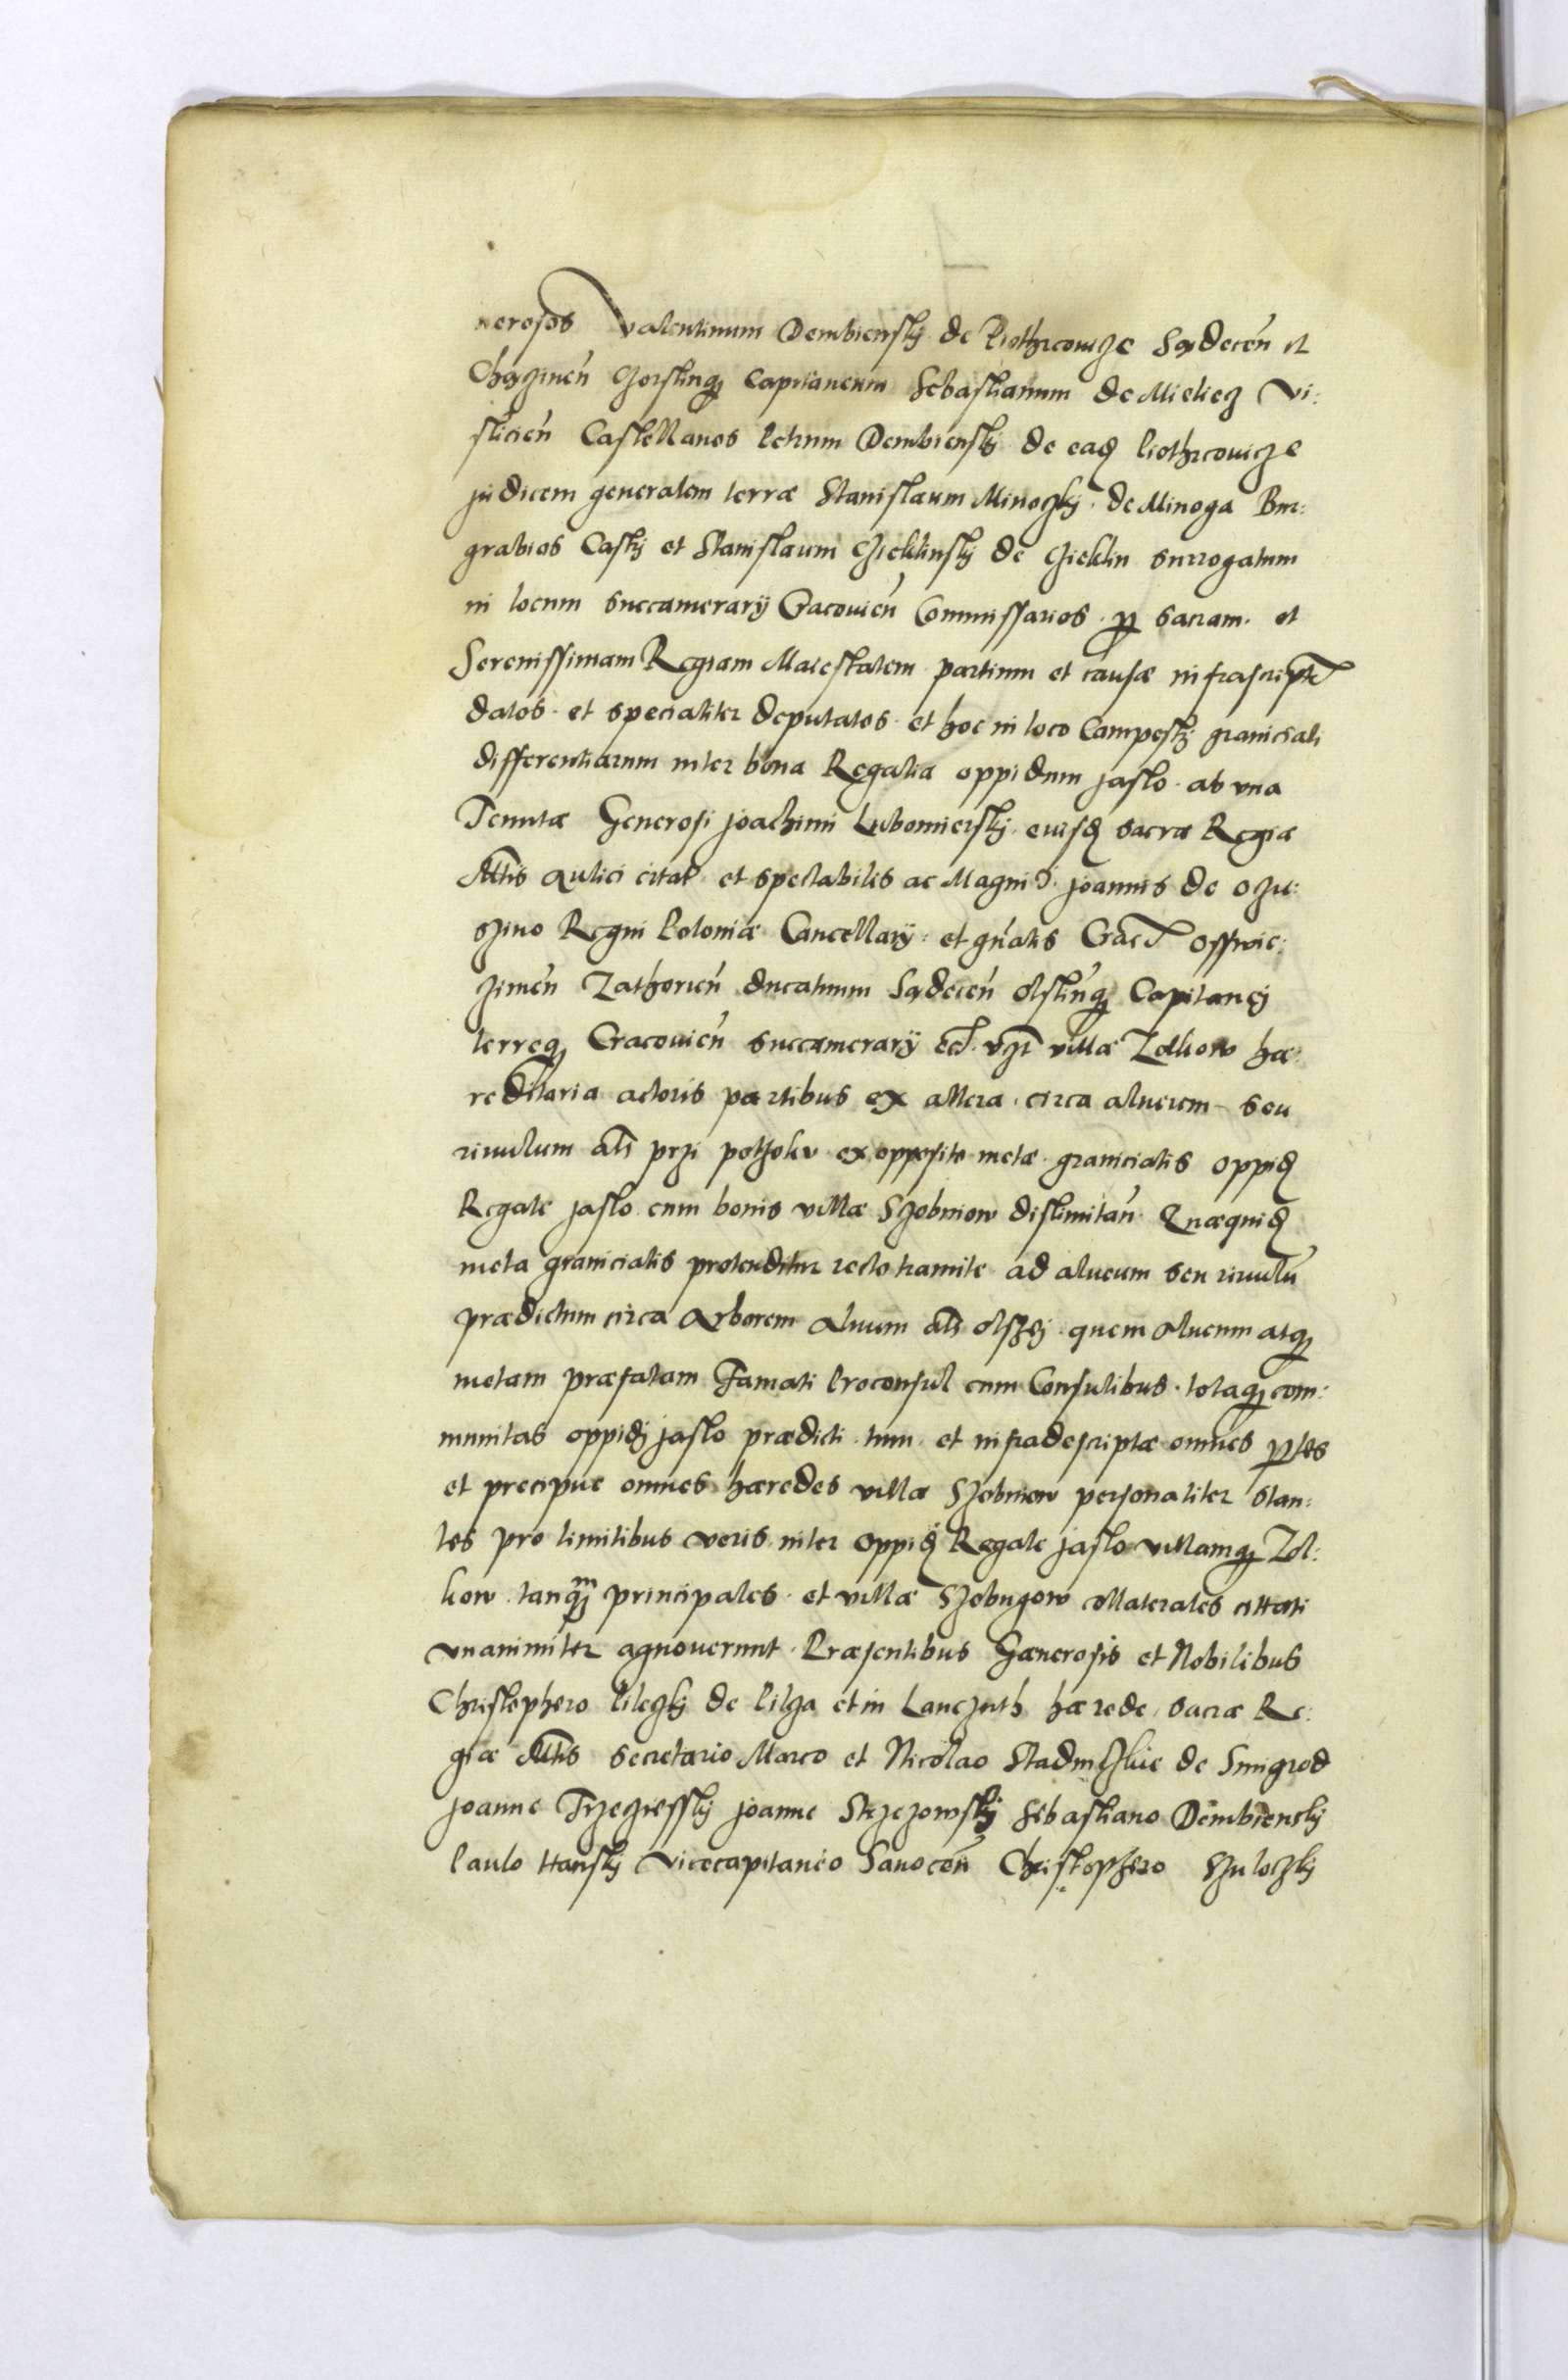 nerosos Valentinum Dembiensky de Piothrcowicze Sądecen̄ et
Chączinen̄ Czorstinq₃ Capitaneum Sebastianum de Mieliecz Vi:
slicien̄ Castellanos Petrum Dembiensky de eadꝫ Piothrcowicze
judicem generalem terræ Stanislaum Minoczky de Minoga Bur:
grabios Castrj et Stanislaum Czieklinsky de Czieklin surrogatum
in locum succamerarij Cracouien̄ Commissarios ꝑ sacram et
Serenissimam Regiam Maiestatem partium et causæ infrascript
datos et specialiter deputatos et hoc in loco Campestrj granicialj
differentiarum inter bona Regalia oppidum Jaslo ab vna
Tenutæ Generosi Joachimi Lubomiersky eiusdꝫ sacræ Regiæ
Mt̄is aulici citat et spectabilis ac Magnid. Joannis de Oczie:
szino Regni Poloniæ Cancellarij et gn̄alis Crac Osswie:
zimen̄ Zathorien̄ ducatuum Sądecen̄ Olstinq₃ Capitanej
terreq₃ Cracouien̄ succamerarij etc vzt villæ Zolkow hæ:
reditaria actoris partibus ex altera circa alueum seu
riuulum al̄s przi pothoku ex opposito metæ granicialis oppidꝫ
Regale Jaslo cum bonis villæ Szobniow dislimitan̄ Quæquidꝫ
meta granicialis protenditur recto tramite ad alueum seu riuulū
prædictum circa Arborem alnum al̄s olszej quem alueum atq₃
metam præfatam Famati Proconsul cum Consulibus totaq₃ com:
munitas oppidj Jaslo prædicti tum et infradescriptæ omnes ꝑtes
et precipue omnes hæredes villæ Szobniow personaliter stan:
tes pro limitibus veris inter oppidꝫ Regale Jaslo villamq₃ Zol:
kow tanqꝫm principales et villæ Szobnyow collaterales cittati
vnanimiter agnouerunt Præsentibus Generosis et Nobilibus
Christophero Pileczky de Pilcza et in Lanczuth hærede sacræ Re:
giæ Mt̄is secretario Marco et Nicolao Stadniczkie de Smigrod
Joanne Trzecziessky Joanne Strzezowsky Sebastiano Dembiensky
Paulo Hansky Vicecapitaneo Sanocen̄ Christophero Szuloczky